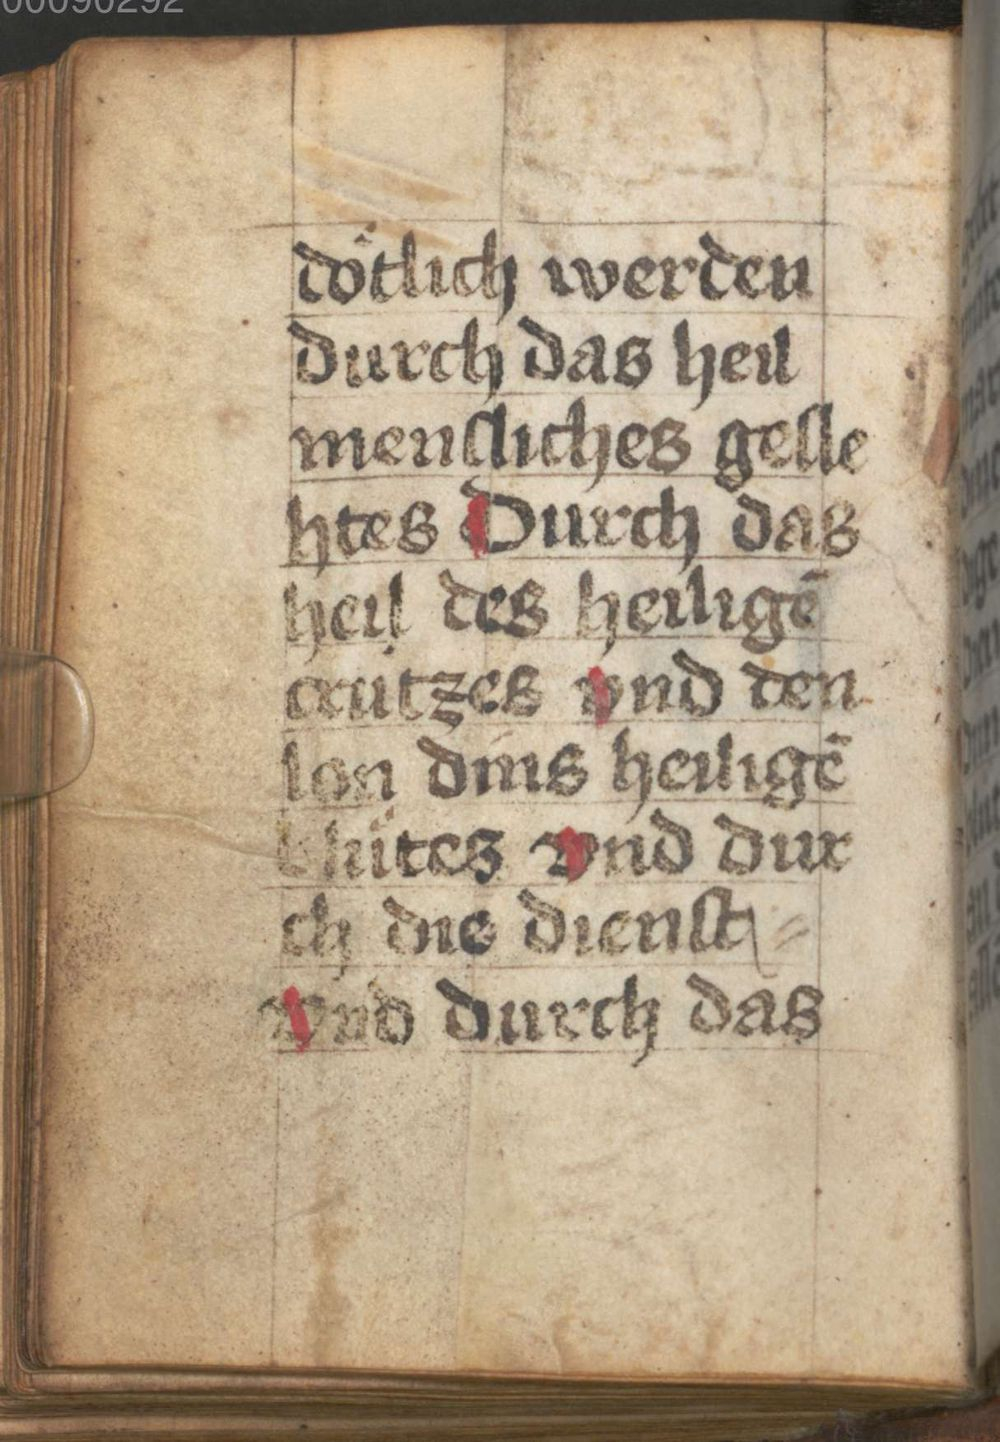 00090292
dötlich werden
durch das heil
mensliches gesle
htes Durch das
heil des heiligē
crützes vnd den
lon dins heiligē
blütes vnd dur
ch die dienst
vnd durch das